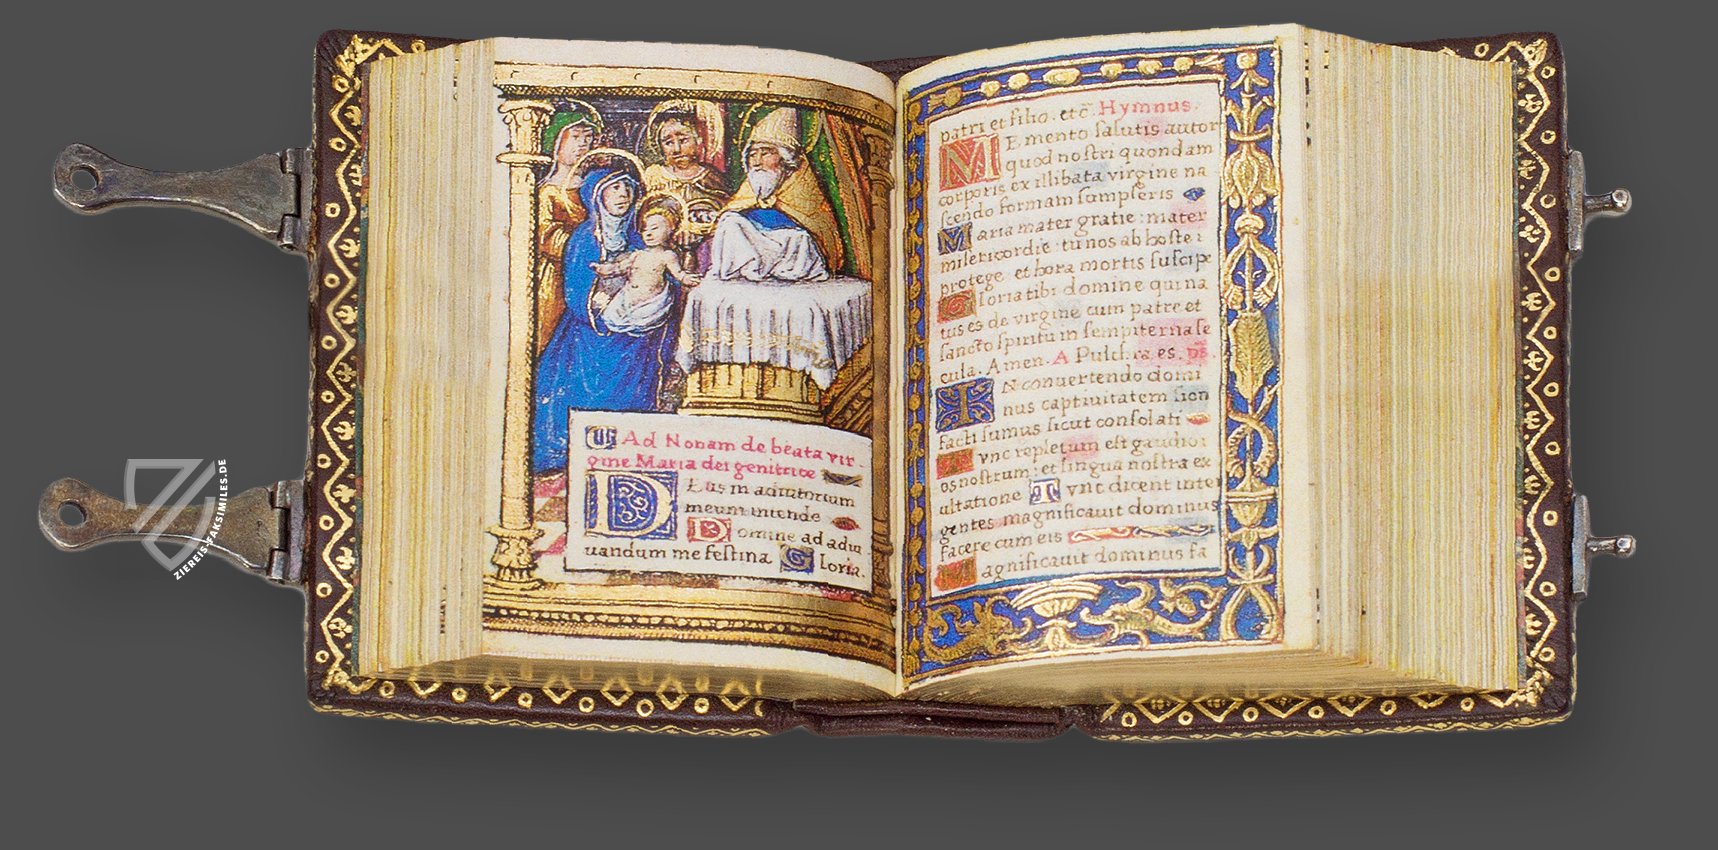 Ad Nonam de beata vir-
gine Maria dei genitrice
DEus in adiutorium
meum intende
Domine ad adiu
uandum me festina Gloria.
patri et filio. etc̄. Hymnus.
MEmento salutis autor
quod nostri quondam
corporis ex illibata virgine na
scendo formam sumpseris
Maria mater gratie: mater
misericordie: tu nos ab hoste
protege et hora mortis suscipe
Gloria tibi domine qui na
tus es de virgine cum patre et
sancto spiritu in sempiterna se
cula. Amen. A Pulch. ra es. ps̄.
IN conuertendo domi
nus captiuitatem sion
facti sumus sicut consolati
Tvnc repletum est gaudio
os nostrum: et lingua nostra ex
ultatione Tvnc dicent inter
gentes magnificauit dominus
facere cum eis
Magnificauit dominus fa
ZIEREIS-FAKSIMILES.DE